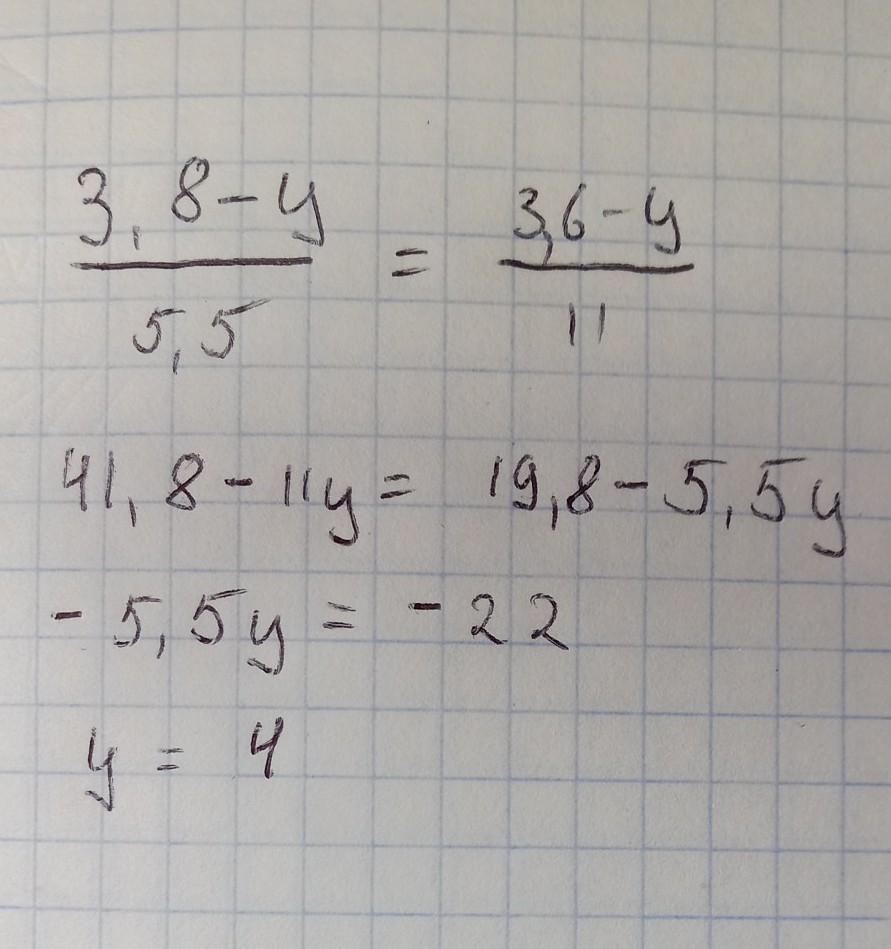 (3,8-y)/5,5 = (3,6-y)/11
41,8-11y= 19,8-5,5y
-5,5y = -22
y = 4